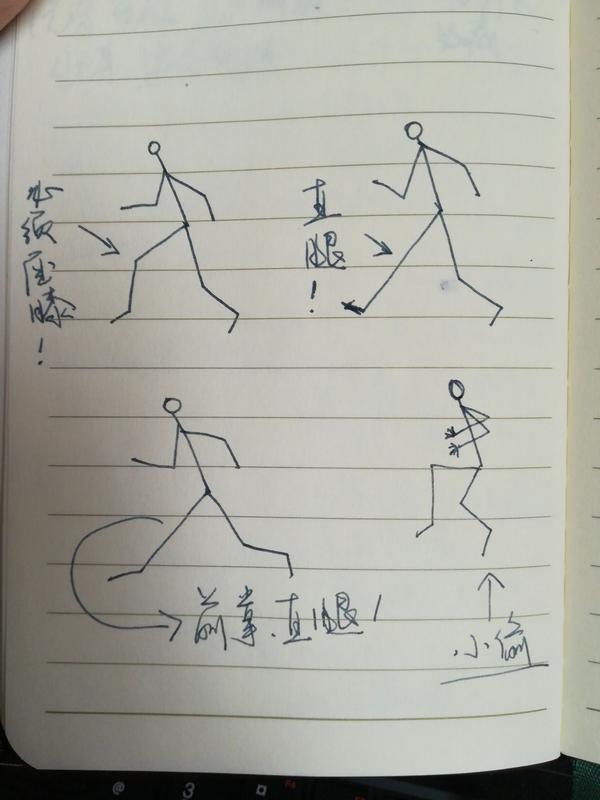 必须屈膝！
直腿！
前掌、直腿！
小偷
@
3
F4